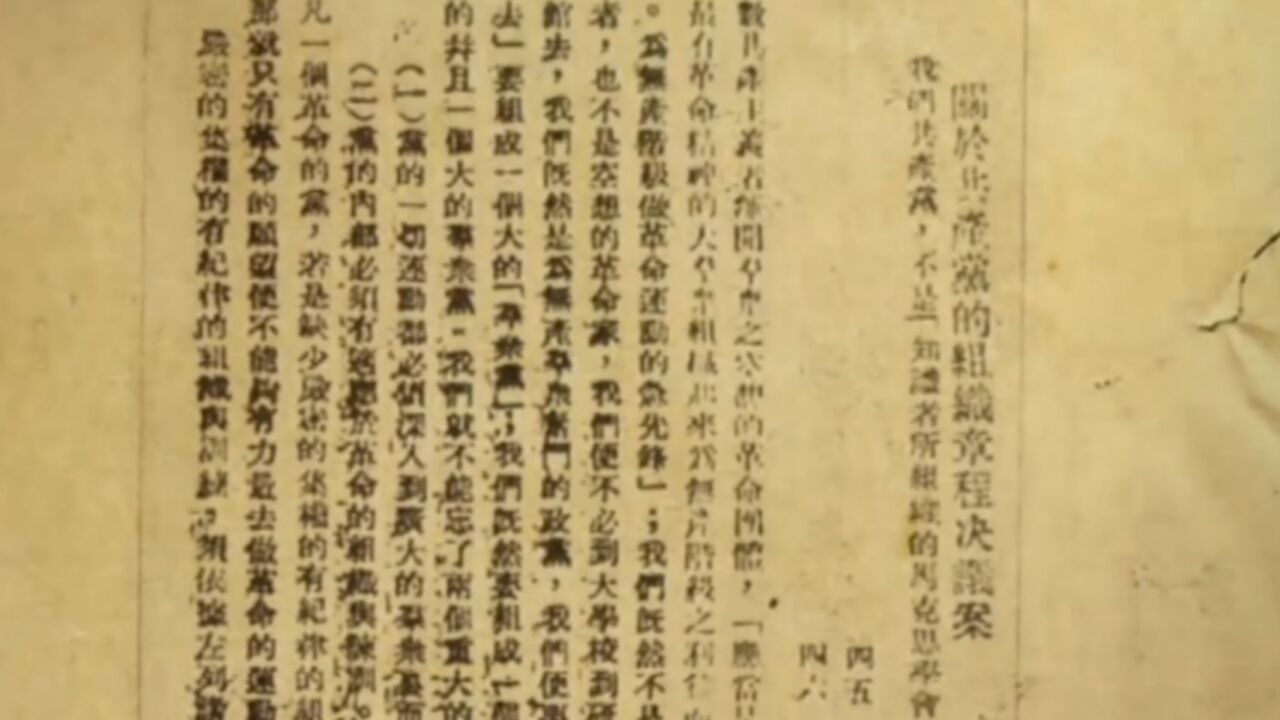 關於共產黨的組織章程決議案
我們共產黨,不是「知識者所組織的馬克思學會
四五
四六
數共產主義者離開羣衆之空想的革命團體,「應當
最有革命精神的大羣衆組織起來爲無產階級之利
。爲無產階級做革命運動的急先鋒」;我們既然不是
者,也不是空想的革命家,我們便不必到大學校到研
館去,我們既然是爲無產羣衆奮鬥的政黨,我們便要
去」要組成一個大的「羣衆黨」;我們既然要組成一個
的幷且一個大的羣衆黨。我們就不能忘了兩個重大的
(一)黨的一切運動都必須深入到廣大的羣衆裏面
(二)黨的內部必須有適應於革命的組織與訓
凡一個革命的黨,若是缺少嚴密的集權的有紀律的組
那就只有革命的願望便不能夠有力量去做革命的運動
嚴密的集權的有紀律的組織與訓練,須依據左列諸